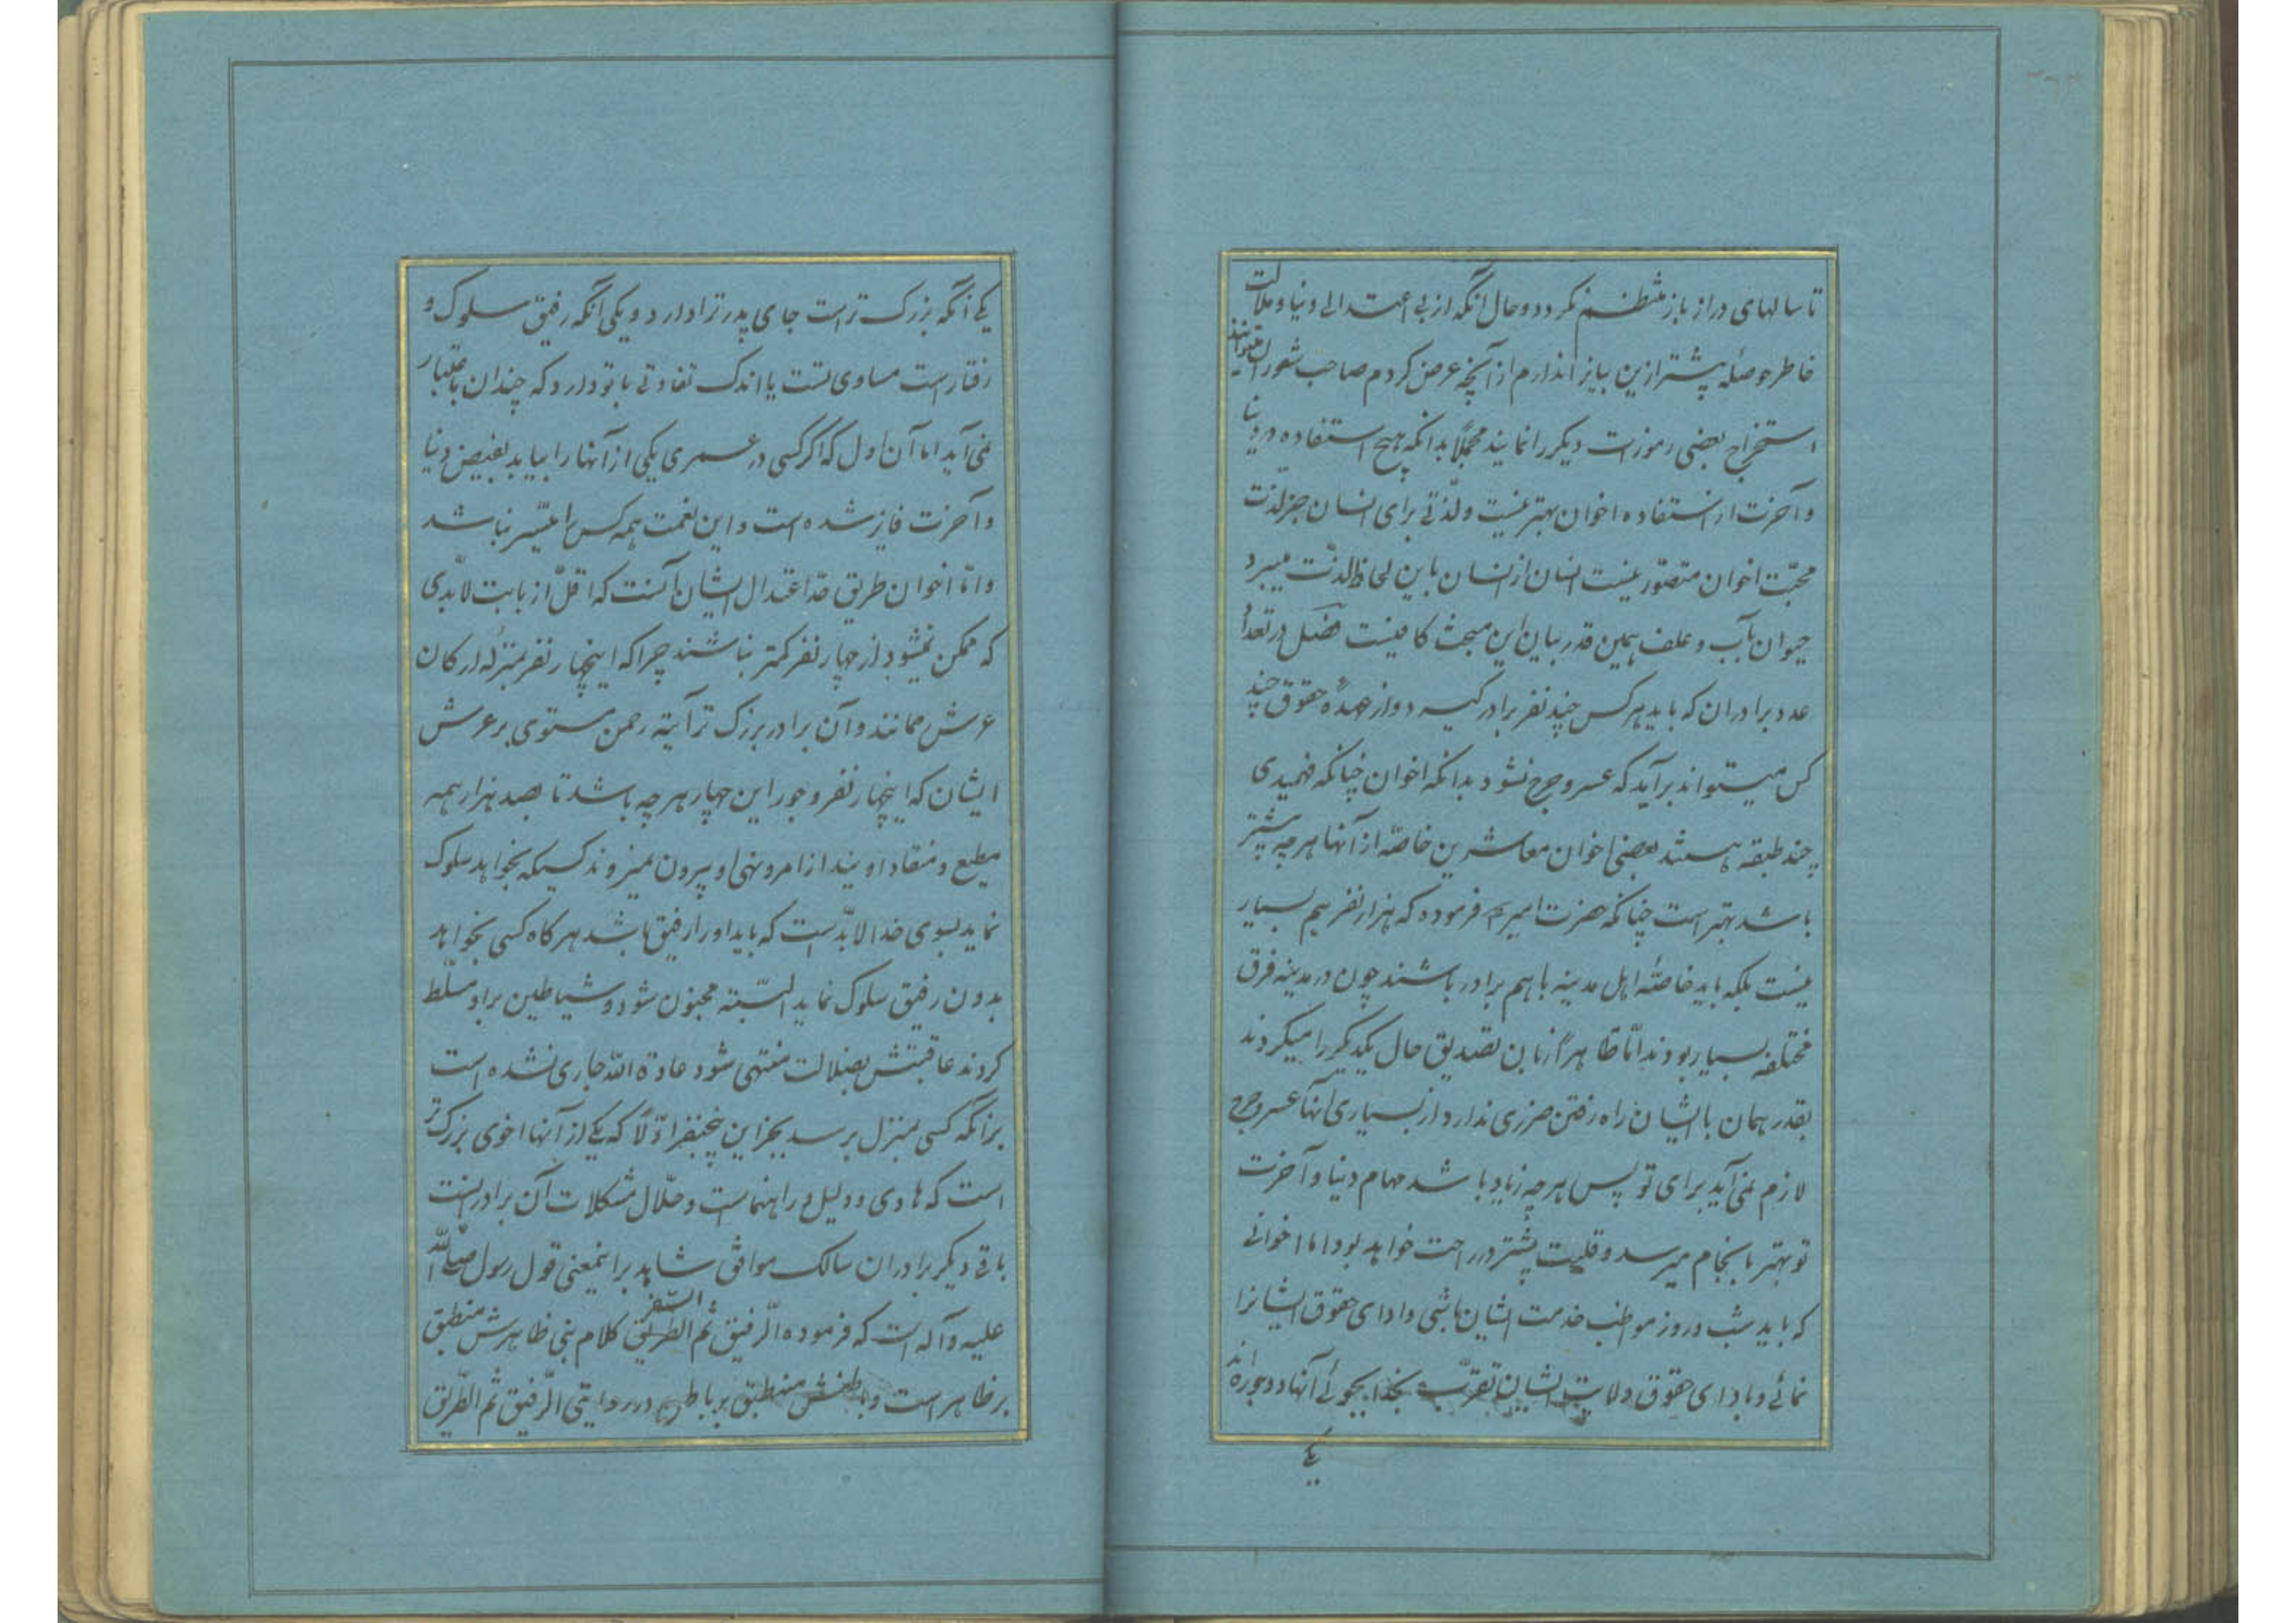 تا سالهای دراز باز منتظم نگردد و حال آنکه از بی اعتدالی دنیا و ملالت
خاطر حوصله بیشتر ازین بیانرا ندارم از آنچه عرض کردم صاحب شوران میتوانند
استخراج بعضی رموزات دیگر را نمایند مجملاً بدانکه هیچ استفاده در دنیا
و آخرت از استفاده اخوان بهتر نیست و لذتی برای انسان جز لذت
محبّت اخوان متصوّر نیست انسان از انسان باین لحاظ لذّت میبرد
حیوان بآب و علف همین قدر بیان این مبحث کافیست فصل در تعداد
عدد برادران که باید هرکس چند نفر برادر گیرد و از عهدهٔ حقوق چند
کس میتواند برآید که عسر و حرج نشود بدانکه اخوان چنانکه فهمیدی
چند طبقه هستند بعضی اخوان معاشرین خاصّه از آنها هرچه بیشتر
باشد بهتر است چنانکه حضرت امیر فرموده که هزار نفر هم بسیار
نیست بلکه باید خاصّهٔ اهل مدینه با هم برادر باشند چون در مدینه فرق
مختلفه بسیار بودند امّا ظاهراً زبان تصدیق حال یکدیگر را میکردند
بقدر همان با ایشان راه رفتن ضرری ندارد از بسیاری آنها عسر و حرج
لازم نمی آید برای تو پس هرچه زیاد باشد مهام دنیا و آخرت
تو بهتر بانجام میرسد و قلبت بیشتر در راحت خواهد بود اما اخوانی
که باید شب و روز مواظب خدمت ایشان باشی و ادای حقوق ایشانرا
نمائی و بادای حقوق ولایت ایشان تقرّب بخدا بجوئی آنها دو جوره اند
یکی
یکی آنکه بزرگ تر است جای پدر ترا دارد و یکی آنکه رفیق سلوک و
رفتار است مساوی تست یا اندک تفاوتی با تو دارد که چندان باعتبار
نمی آید اما آن اول که اگر کسی در عمری یکی از آنها را بیابد بفیض دنیا
و آخرت فایز شده است و این نعمت همه کس را میسّر نباشد
و امّا اخوان طریق حدّ اعتدال ایشان آنست که اقلّ از بابت لابدّی
که ممکن نمیشود از چهار نفر کمتر نباشند چرا که اینچهار نفر بمنزله ارکان
عرش میمانند و آن برادر بزرگ تر آیة رحمن مستوی بر عرش
ایشان که اینچهار نفر و جور این چهار هرچه باشد تا بصد هزار همه
مطیع و منقاد اویند از امر و نهی او بیرون نمیروند کسیکه بخواهد سلوک
نماید بسوی خدا لابدّ است که باید او را رفیق باشد هرکاه کسی بخواهد
بدون رفیق سلوک نماید البتّه مجنون شود و شیاطین بر او مسلّط
گردند عاقبتش بضلالت منتهی شود عادة الله جاری نشده است
بر آنکه کسی بمنزل برسد بجز این پنجنفر اوّلا که یکی از آنها اخوی بزرگ تر
است که هادی و دلیل و راهنماست و حلّال مشکلات آن برادر است
باقی دیگر برادران سالک موافق شاهد بر اینمعنی قول رسول صلی الله
علیه و آله است که فرموده الرفیق ثم الطریق السفر کلام نبی ظاهرش منطبق
بر ظاهر است و باطنش منطبق بر باطن در روایتی الرّفیق ثم الطّریق